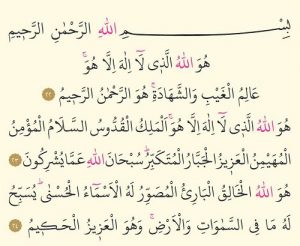 بِسْمِ اللهِ الرَّحْمٰنِ الرَّحِيمِ
هُوَ اللهُ الَّذِى لَٓا اِلٰهَ اِلَّا هُوَۚ
عَالِمُ الْغَيْبِ وَالشَّهَادَةِۚ هُوَ الرَّحْمٰنُ الرَّحِيمُ ﴿٢٢﴾
هُوَ اللهُ الَّذِى لَٓا اِلٰهَ اِلَّا هُوَۚ اَلْمَلِكُ الْقُدُّوسُ السَّلَامُ الْمُؤْمِنُ
الْمُهَيْمِنُ الْعَزِيزُ الْجَبَّارُ الْمُتَكَبِّرُۜ سُبْحَانَ اللهِ عَمَّا يُشْرِكُونَ ﴿٢٣﴾
هُوَ اللهُ الْخَالِقُ الْبَارِئُ الْمُصَوِّرُ لَهُ الْاَسْمَٓاءُ الْحُسْنٰىۜ يُسَبِّحُ
لَهُ مَا فِى السَّمٰوَاتِ وَالْاَرْضِۚ وَهُوَ الْعَزِيزُ الْحَكِيمُ ﴿٢٤﴾